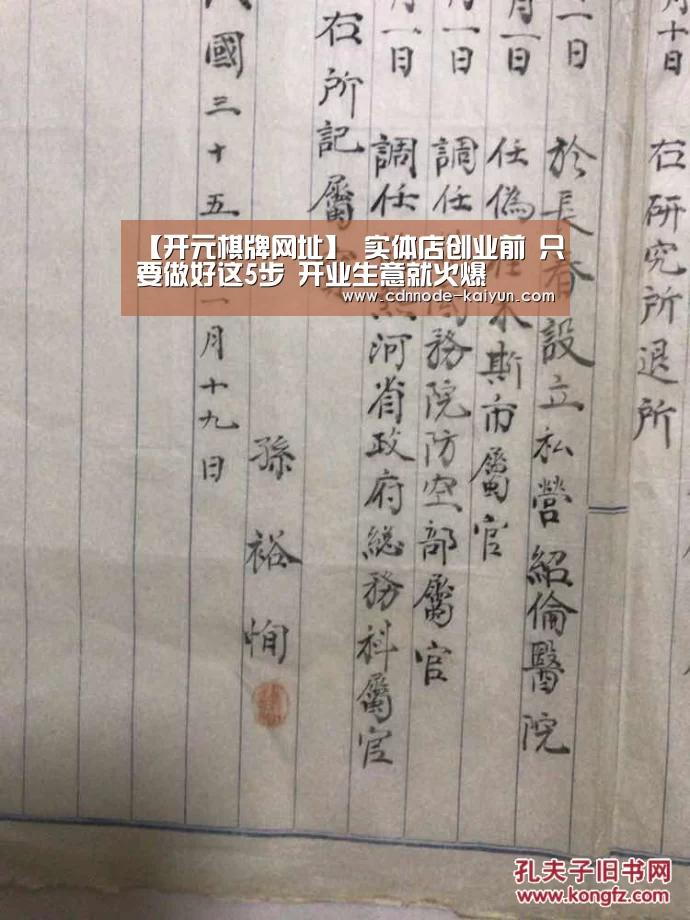 月十日 右研究所退所
一日 於長春設立私營紹倫醫院
月一日 任偽佳木斯市屬官
月一日 調任 國務院防空部屬官
月一日 調任 河省政府總務科屬官
右所記屬
孫裕恂
國三十五 一月十九日
【开元棋牌网址】 实体店创业前 只
要做好这5步 开业生意就火爆
www.cdnnode-kaiyun.com
孔夫子旧书网
www.kongfz.com